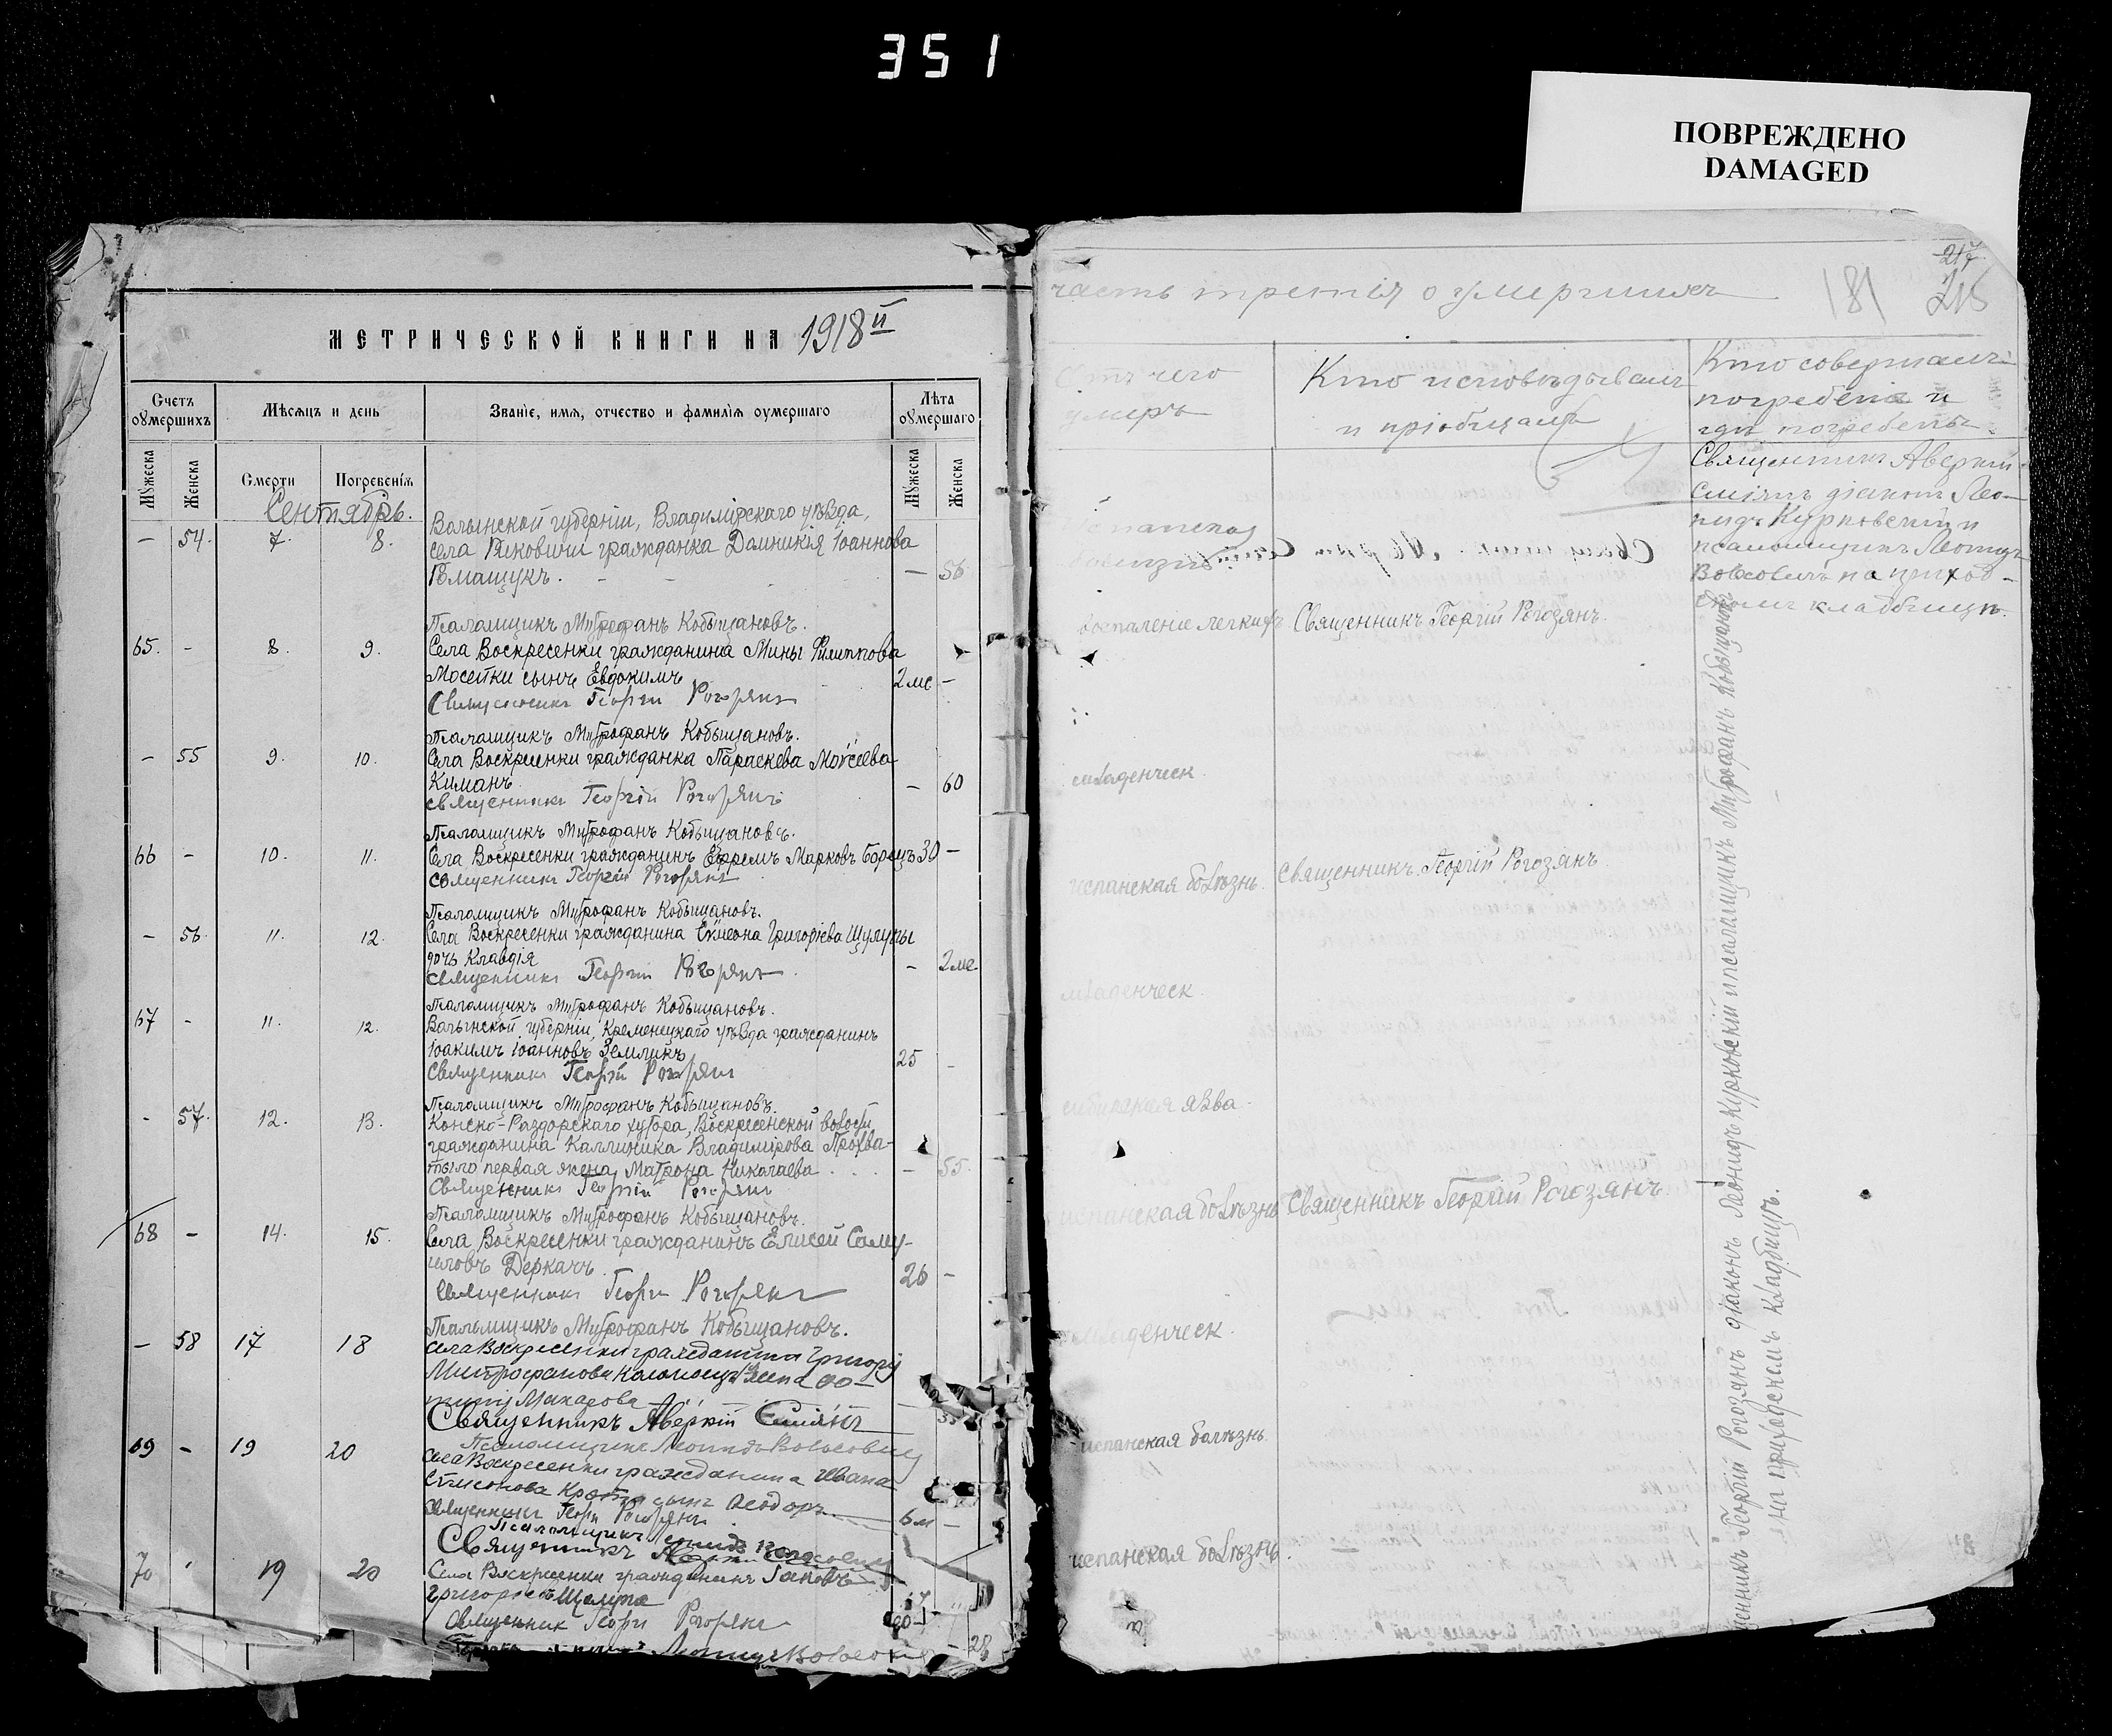 351
ПОВРЕЖДЕНО
DAMAGED
МЕТРИЧЕСКОЙ КНИГИ НА 1918
Счетъ оумершихъ
Мѣсяцъ и день
Званіе, имя, отчество и фамилія оумершаго
Лѣта оумершаго
Мужеска
Женска
Смерти
Погребенія
Мужеска
Женска
Сентябрь.
Волынской губерніи, Владимірскаго уѣзда,
– 54. 7. 8. села гражданка Домникія Іоаннова
– 56
Псаломщикъ Митрофанъ Кобыщановъ.
65. – 8. 9. Села Воскресенки гражданина Мины Филиппова
Мосейки сынъ Евдокимъ 2 мс –
Священникъ Георгій Рогозянъ
Псаломщикъ Митрофанъ Кобыщановъ.
– 55 9. 10. Села Воскресенки гражданка Параскева Моѵсеева
Киманъ. – 60
Священникъ Георгій Рогозянъ
Псаломщикъ Митрофанъ Кобыщановъ.
66 – 10. 11. Села Воскресенки гражданинъ Ефремъ Марковъ Борецъ 30 –
Священникъ Георгій Рогозянъ
Псаломщикъ Митрофанъ Кобыщановъ.
– 56. 11. 12. Села Воскресенки гражданина Григоріева Шулупы
дочь Клавдія – 2 мс.
Священникъ Георгій Рогозянъ
Псаломщикъ Митрофанъ Кобыщановъ.
67 – 11. 12. Волынской губерніи, Кременецкаго уѣзда гражданинъ
Іоакимъ Іоанновъ Земликъ 25 –
Священникъ Георгій Рогозянъ
Псаломщикъ Митрофанъ Кобыщановъ.
– 57. 12. 13. Конско-Раздорскаго хутора, Воскресенской волости
гражданина Каллиника Владимірова Прохва-
тыло первая жена Матрона Николаева – 55.
Священникъ Георгій Рогозянъ
Псаломщикъ Митрофанъ Кобыщановъ.
68 – 14. 15. Села Воскресенки гражданинъ Елисей Саму-
иловъ Деркачъ. 26 –
Священникъ Георгій Рогозянъ
Псаломщикъ Митрофанъ Кобыщановъ.
– 58 17 18 села Воскресенки гражданина Григорія
Митрофанова
Макарова
Священникъ Аверкій Симіянъ
Псаломщикъ Леонидъ Волосовичъ
69 – 19 20 села Воскресенки гражданина Ивана
сынъ Ѳеодоръ
Священникъ Георгій Рогозянъ 6 м –
Псаломщикъ
Священникъ
70 19 20 Села Воскресенки гражданинъ Яковъ
Григорьевъ Шулупа
Священник Георгій Рогозянъ
28
217
часть третія о умершихъ 181 216
Отъ чего умеръ
Кто исповѣдывалъ и пріобщалъ
Кто совершалъ погребеніе и гдѣ погребены.
Священникъ Аверкій
Симіянъ діаконъ Лео-
нидъ Курковскій и
псаломщикъ Леонидъ
Волосовичъ на приход-
скомъ кладбищѣ.
болѣзнь
воспаленіе легкихъ Священникъ Георгій Рогозянъ.
младенческ.
испанская болѣзнь. Священникъ Георгій Рогозянъ
младенческ.
сибирская язва.
испанская болѣзнь Священникъ Георгій Рогозянъ
младенческ.
испанская болѣзнь
испанская болѣзнь.
Священникъ Георгій Рогозянъ діаконъ Леонидъ Курковскій и псаломщикъ Митрофанъ Кобыщановъ
на приходскомъ кладбищѣ.